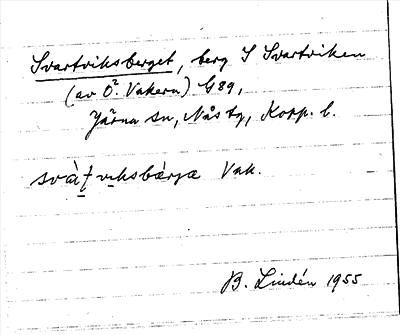 Svartviksberget, berg S Svartviken
(av Ö. Vakern) G89,
Järna sn, Nås tg, Kopp. l.
Vak.
B. Lindén 1955